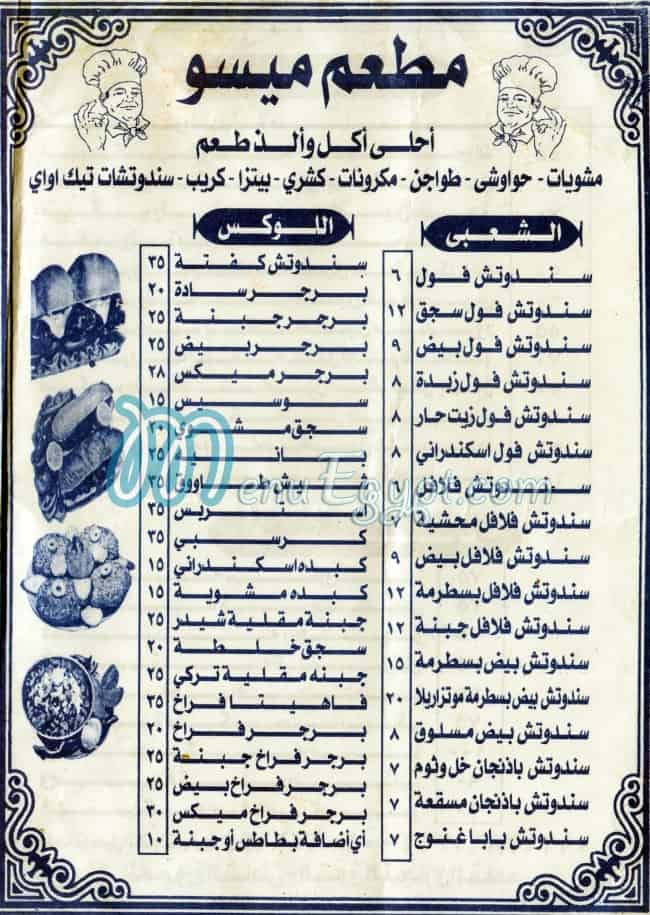 مطعم ميسو
أحلى أكل وألذ طعم
مشويات - حواوشى - طواجن - مكرونات - كشري - بيتزا - كريب - سندوتشات تيك اواي
الشعبى
سندوتش فول ٦
سندوتش فول سجق ١٢
سندوتش فول بيض ٩
سندوتش فول زبدة ٨
سندوتش فول زيت حار ٨
سندوتش فول اسكندراني ٨
سندوتش فلافل ٦
سندوتش فلافل محشية ٧
سندوتش فلافل بيض ٩
سندوتش فلافل بسطرمة ١٢
سندوتش فلافل جبنة ١٢
سندوتش بيض بسطرمة ١٥
سندوتش بيض بسطرمة موتزاريلا ٢٠
سندوتش بيض مسلوق ٨
سندوتش باذنجان خل وثوم ٧
سندوتش باذنجان مسقعة ٧
سندوتش بابا غنوج ٧
اللوكس
سندوتش كفتة ٣٥
برجر سادة ٢٠
برجر جبنة ٢٥
برجر بيض ٢٥
برجر ميكس ٢٨
سوسيس ١٥
سجق مشوي ٢٠
٢٥
شيش طاووق ٣٥
٣٥
كرسبي ٣٥
كبده اسكندراني ١٥
كبده مشوية ١٥
جبنة مقلية شيدر ٢٥
سجق خلطة ٢٠
جبنه مقلية تركي ٢٥
فاهيتا فراخ ٣٥
برجر فراخ ٢٠
برجر فراخ جبنة ٢٥
برجر فراخ بيض ٢٥
برجر فراخ ميكس ٣٠
أي أضافة بطاطس أو جبنة ١٠
MenuEgypt.com